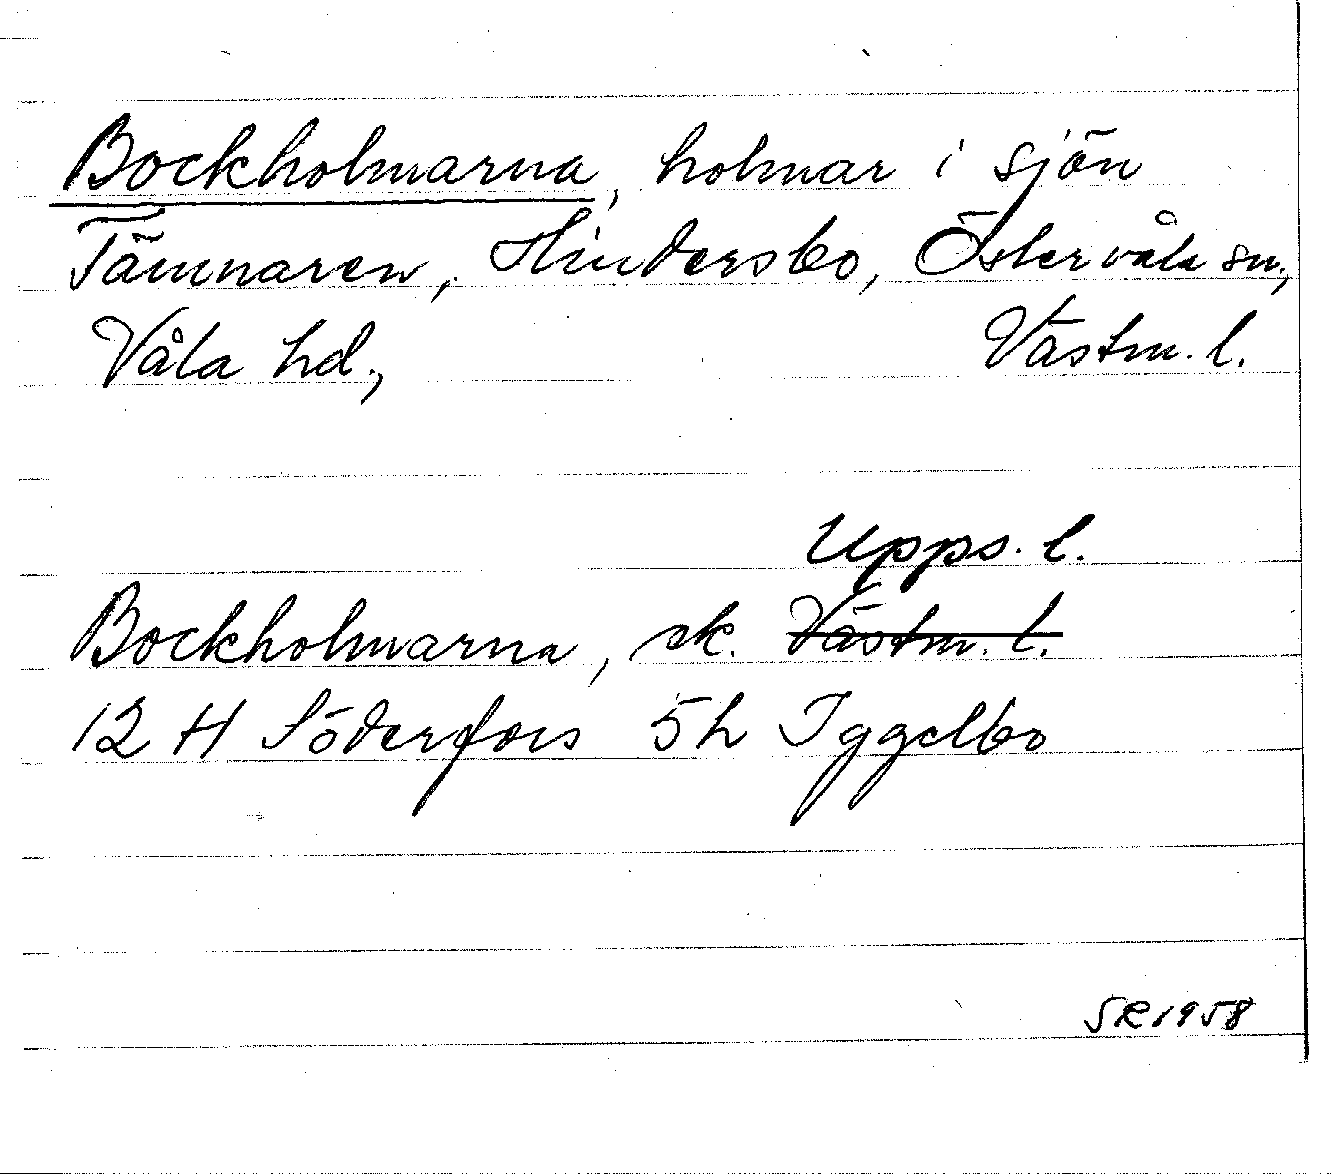 Bockholmarna, holmar i sjön
Tämnaren, Hindersbo, Östervåla sn,
Våla hd., Västm. l.
Upps. l.
Bockholmarna, ek. Västm. l.
12 H Söderfors 5h Iggelbo
SR 1958